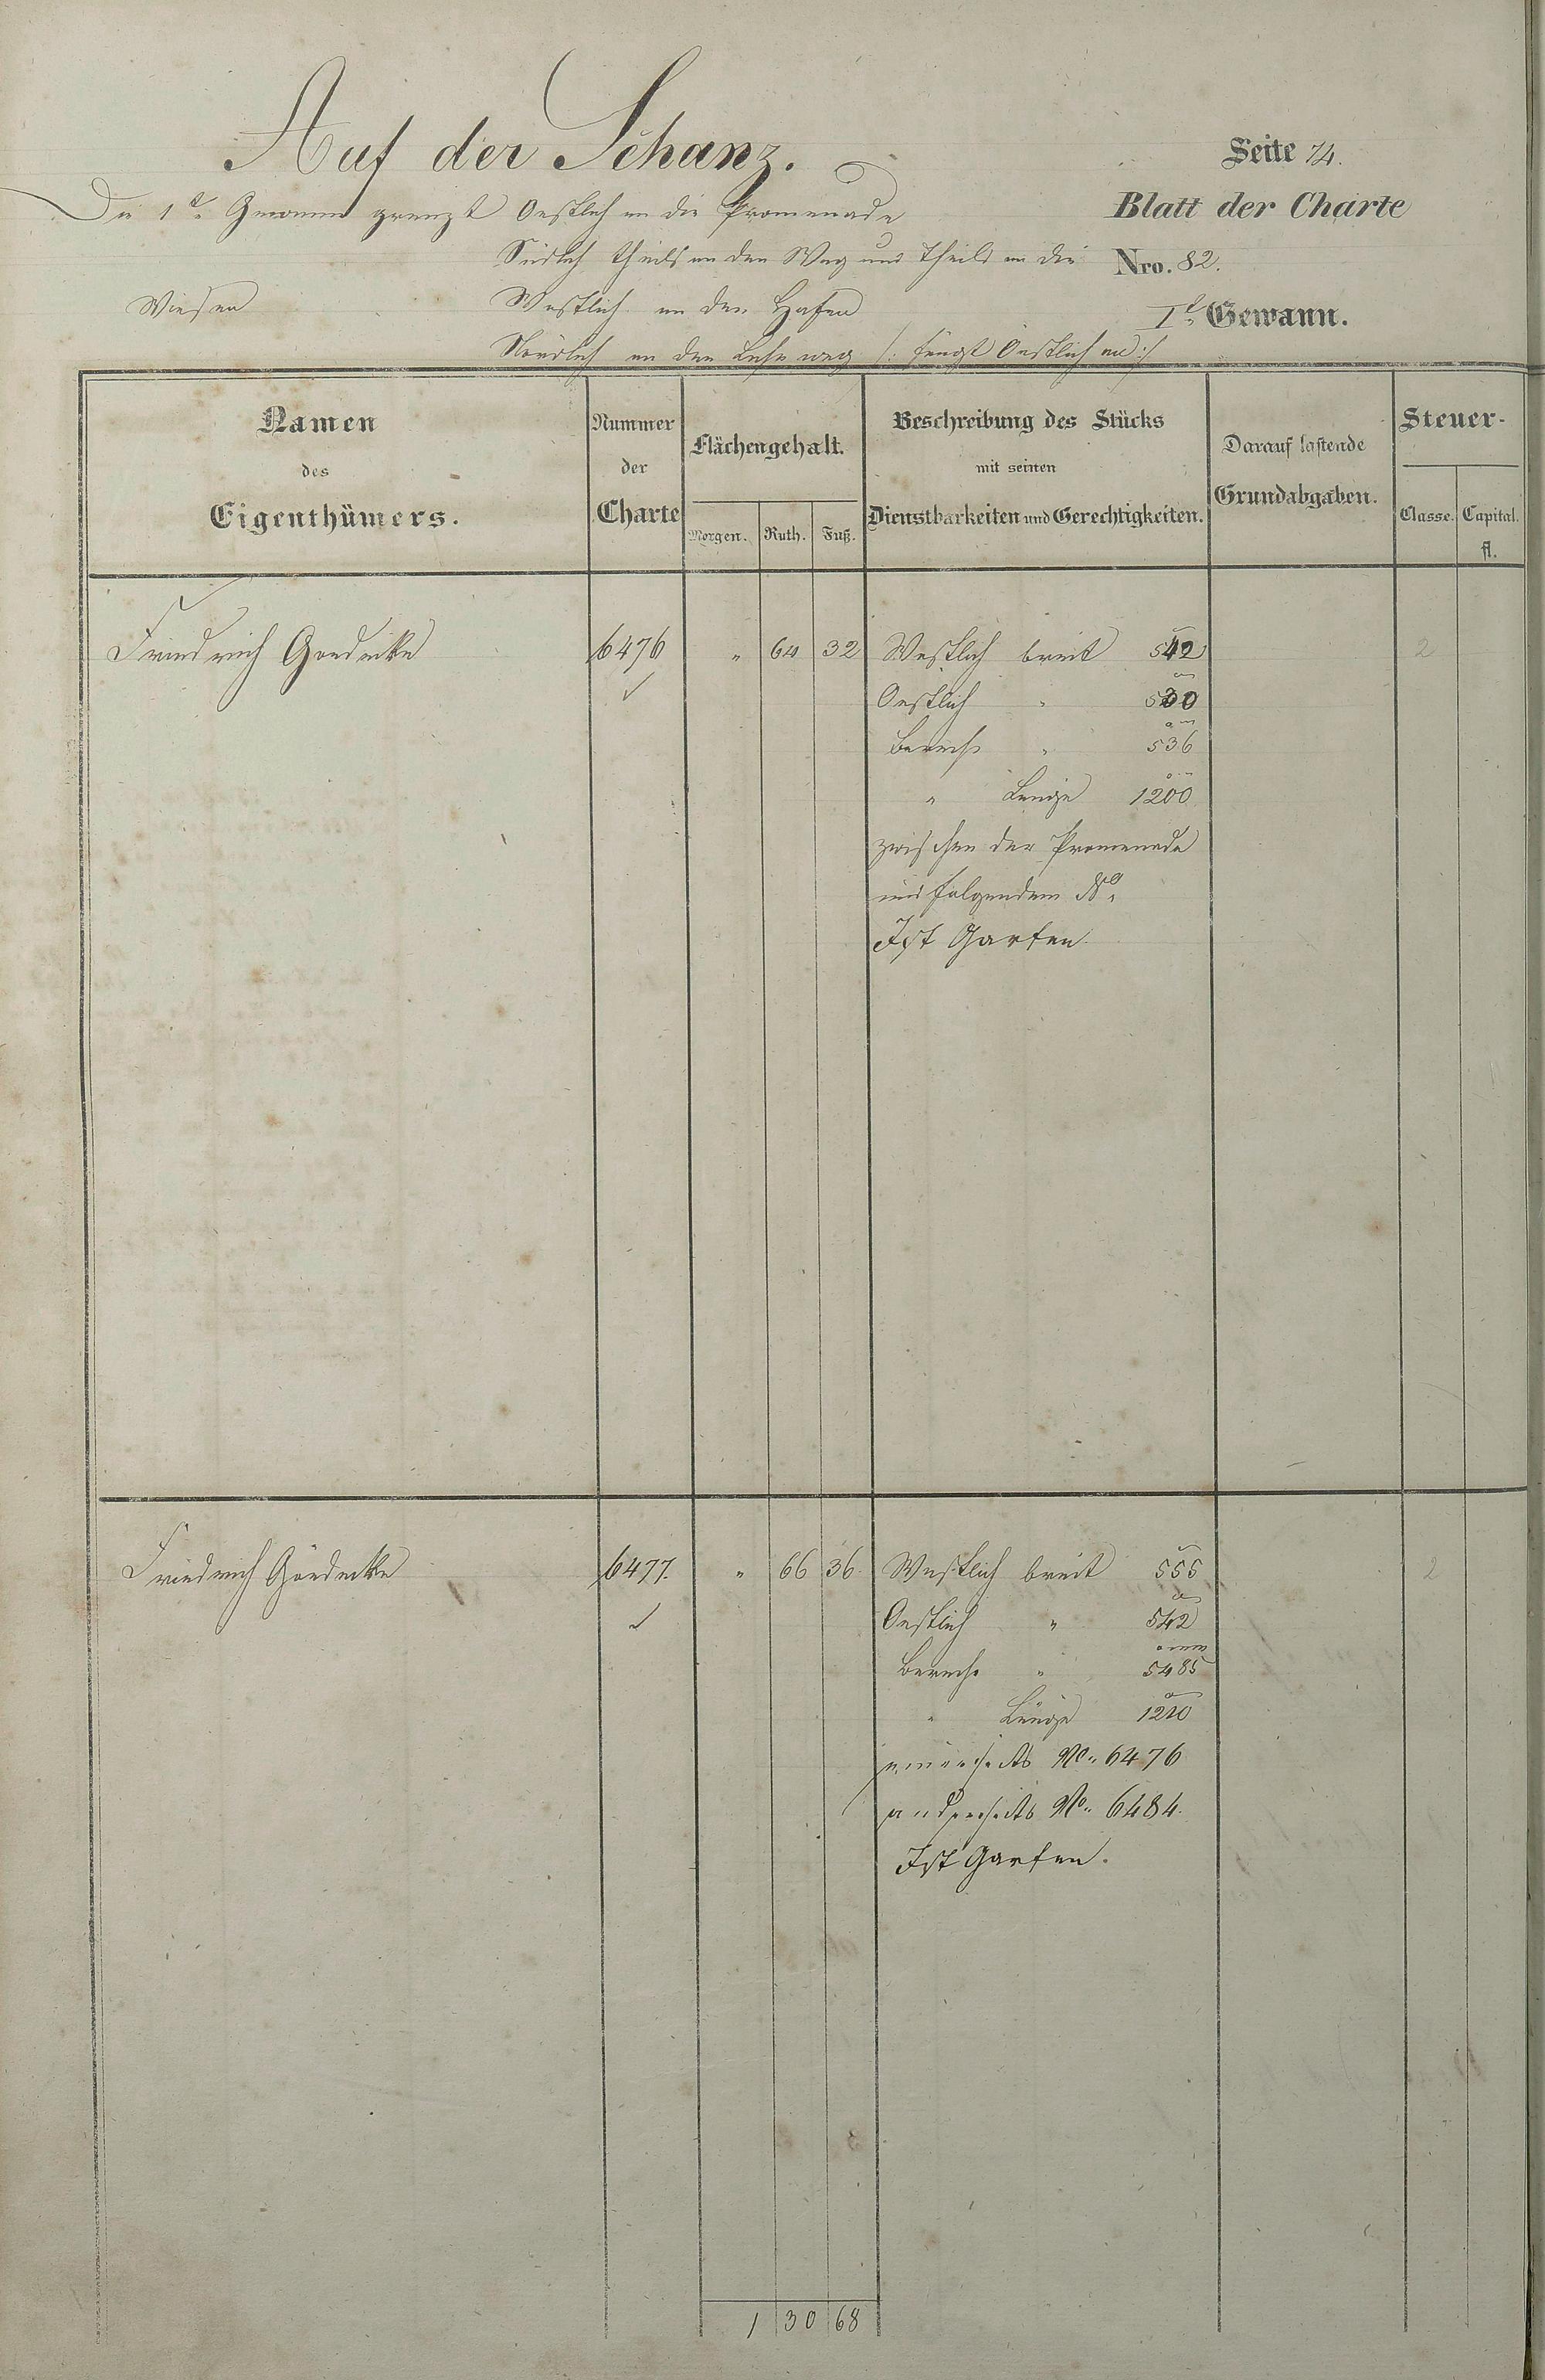 Auf der Schanz.
Seite 74.
Die 1te Gewann grenzt Oestlich an die Promenade
Blatt der Charte
Südlich theils an den Weg und theils an die
Nro. 82.
Wiesen
Westlich an den Hafen
Ite Gewann.
Nördlich an den Lehrweg /: fängt Oestlich an :/
Namen
des
Eigenthümers.
Nummer
der
Charte
Flächengehalt.
Morgen. Ruth. Fuß.
Beschreibung des Stücks
mit seinen
Dienstbarkeiten und Gerechtigkeiten.
Darauf lastende
Grundabgaben.
Steuer-
Classe. Capital.
fl.
Friedrich Goedecke 6476 " 64 32 Westlich breit 542 2
Oestlich " 530
Berech " 536
" Länge 1200
zwischen der Promenade
und folgendem No.
Ist Garten.
Friedrich Goedecke 6477. " 66 36. Westlich breit 555 2
Oestlich " 542
Berech. " 5485
" Länge 1210
einerseits No. 6476
anderseits No. 6484.
Ist Garten.
1 30 68